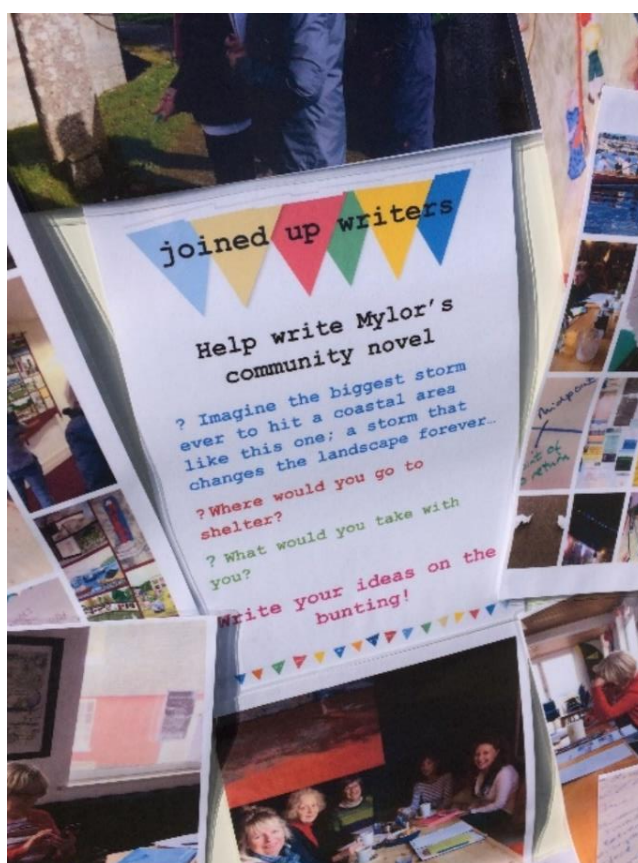 joined up writers
Help write Mylor's
community novel
? Imagine the biggest storm
ever to hit a coastal area
like this one; a storm that
changes the landscape forever…
?Where would you go to
shelter?
? What would you take with
you?
Write your ideas on the
bunting!
Midpoint
of
return